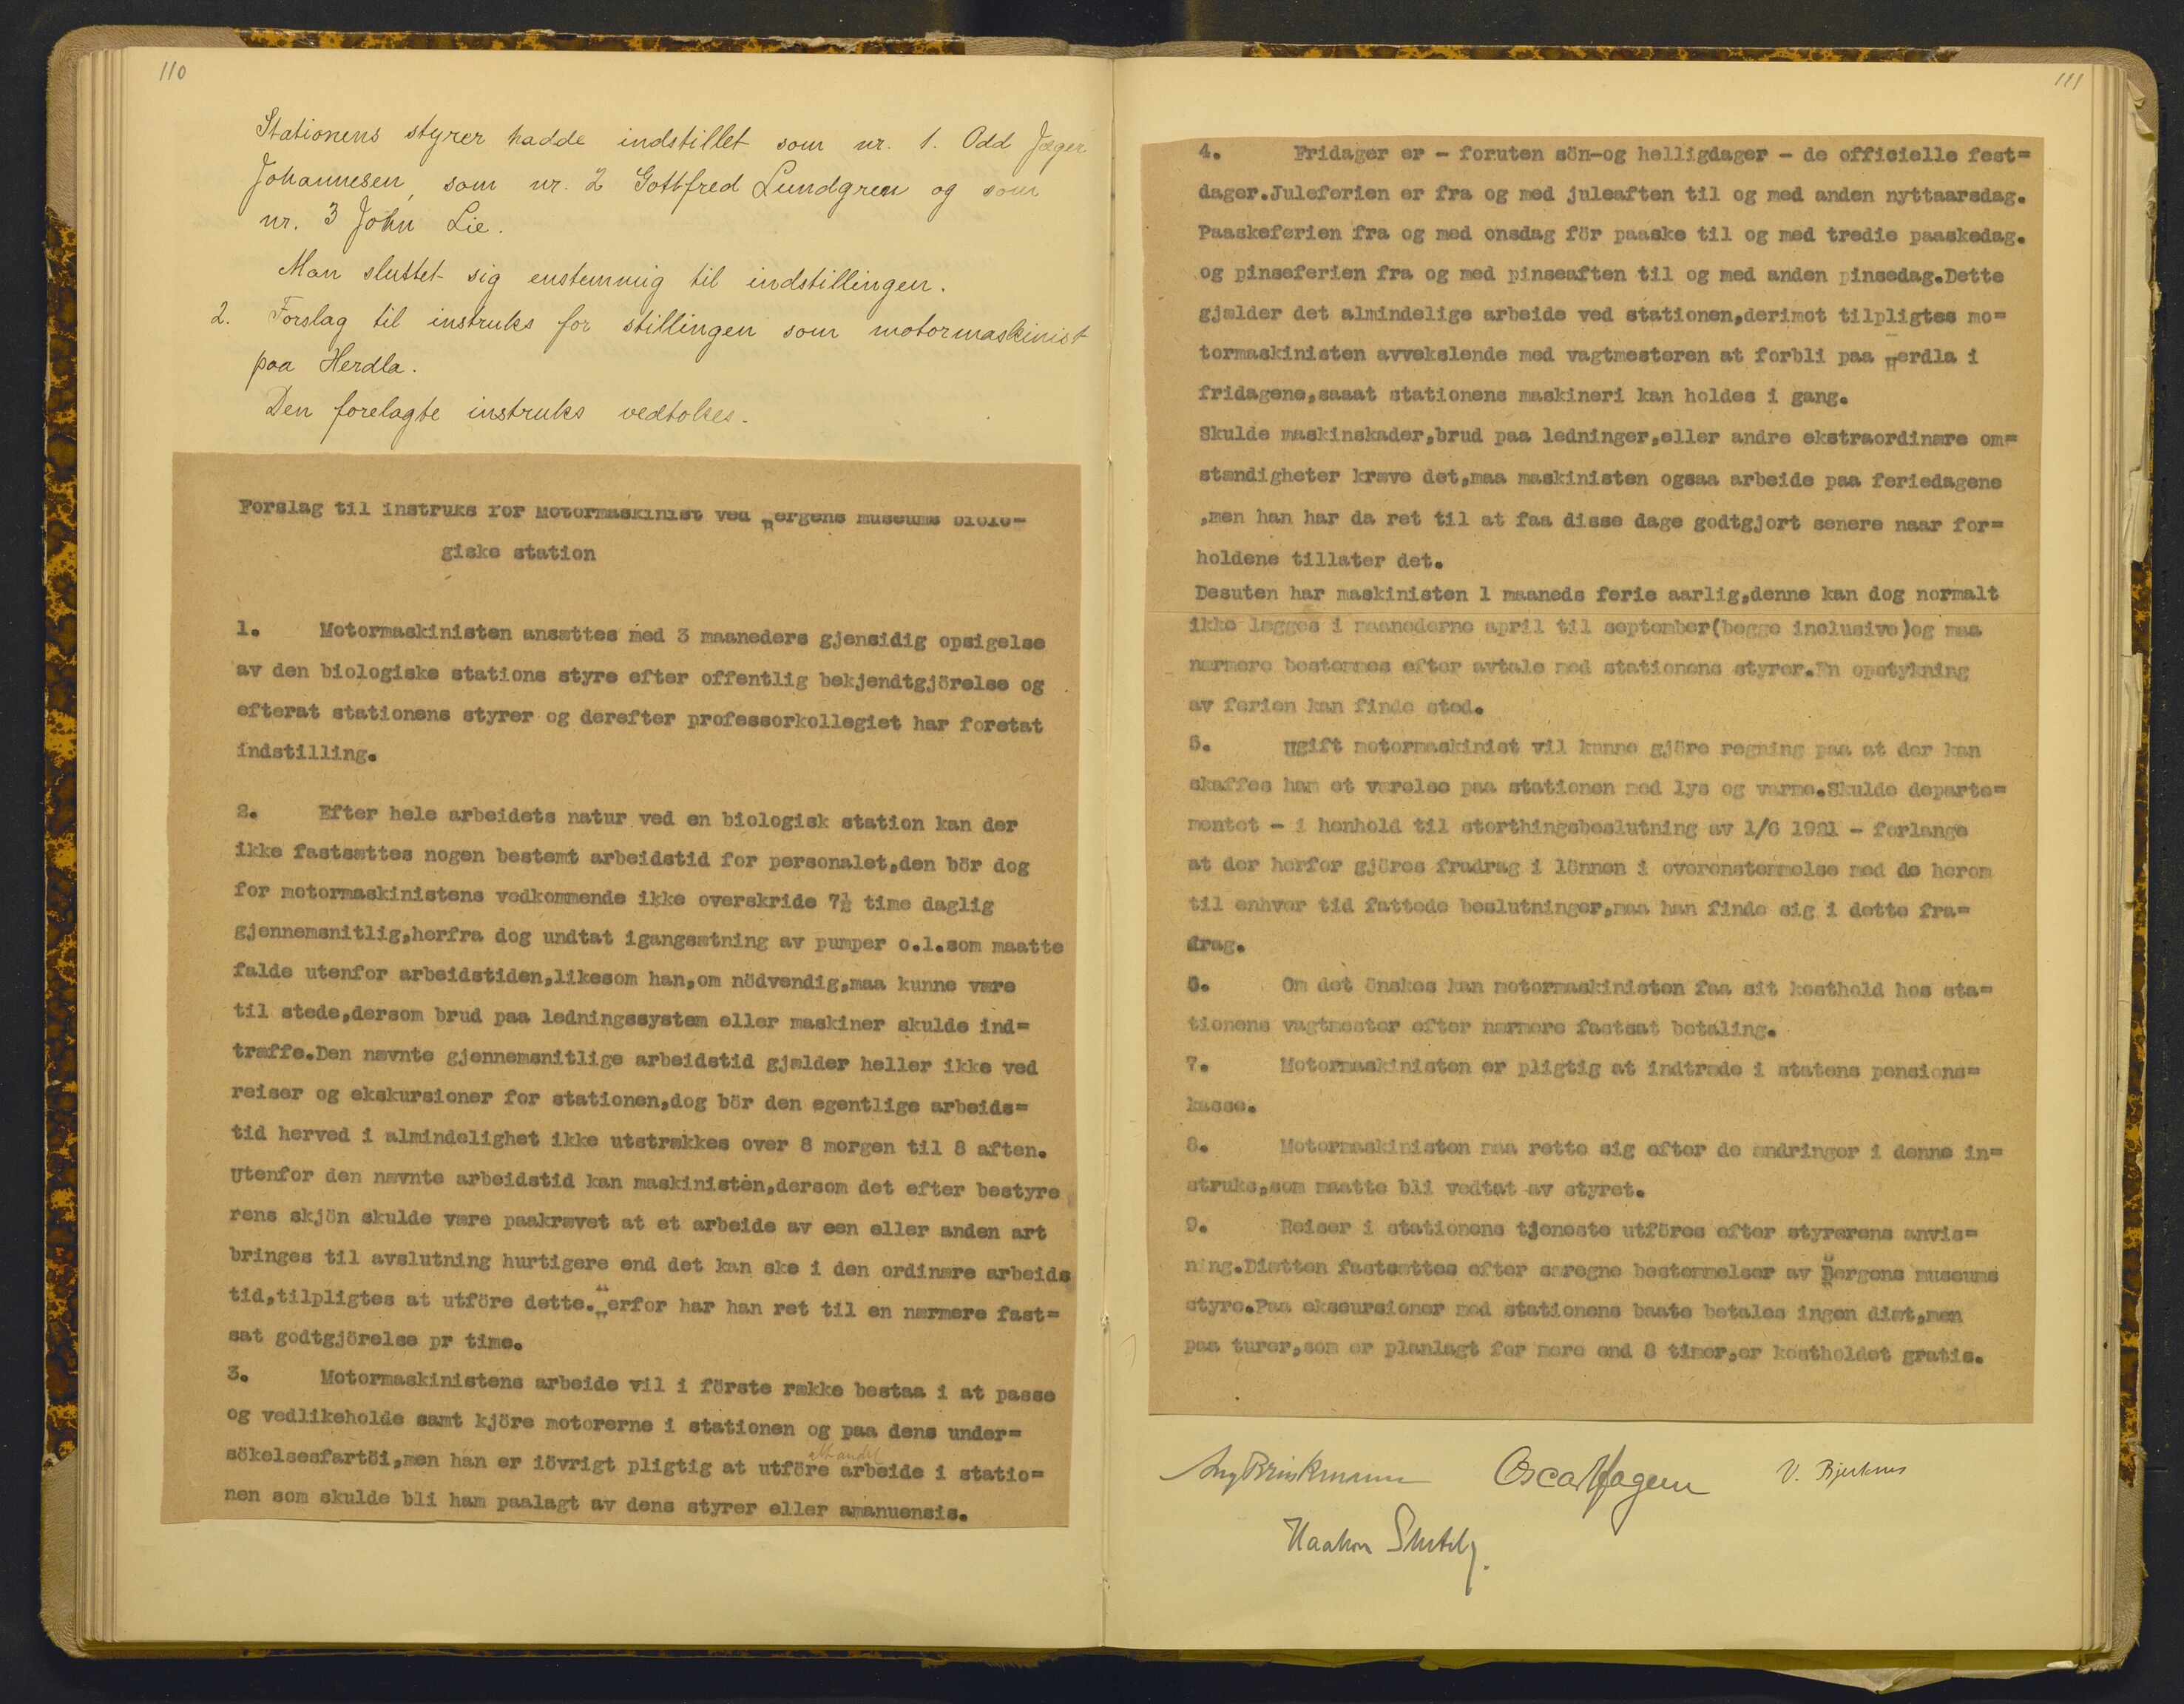 110
Stationens styrer hadde indstillet som nr. 1. Odd Jæger
Johannesen, som nr. 2 Gottfred Lundgren og som
nr. 3 John Lie.
Man sluttet sig enstemmig til indstillingen.
2. Forslag til instruks for stillingen som motormaskinist
paa Herdla.
Den forelagte instruks vedtokes.
Forslag til instruks for Motormaskinist ved Bergens museums biolo=
giske station
1. Motormaskinisten ansættes med 3 maaneders gjensidig opsigelse
av den biologiske stations styre efter offentlig bekjendtgjörelse og
efterat stationens styrer og derefter professorkollegiet har foretat
indstilling.
2. Efter hele arbeidets natur ved en biologisk station kan der
ikke fastsættes nogen bestemt arbeidstid for personalet,den bör dog
for motormaskinistens vedkommende ikke overskride 7½ time daglig
gjennemsnitlig,herfra dog undtat igangsætning av pumper o.l.som maatte
falde utenfor arbeidstiden,likesom han,om nödvendig,maa kunne være
til stede,dersom brud paa ledningssystem eller maskiner skulde ind=
træffe.Den nævnte gjennemsnitlige arbeidstid gjælder heller ikke ved
reiser og ekskursioner for stationen,dog bör den egentlige arbeids=
tid herved i almindelighet ikke utstrækkes over 8 morgen til 8 aften.
Utenfor den nævnte arbeidstid kan maskinisten,dersom det efter bestyre
rens skjön skulde være paakrævet at et arbeide av een eller anden art
bringes til avslutning hurtigere end det kan ske i den ordinære arbeids
tid,tilpligtes at utföre dette.Herfor har han ret til en nærmere fast=
sat godtgjörelse pr time.
3. Motormaskinistens arbeide vil i förste række bestaa i at passe
og vedlikeholde samt kjöre motorerne i stationen og paa dens under=
sökelsesfartöi,men han er iövrigt pligtig at utföre alt andet arbeide i statio=
nen som skulde bli ham paalagt av dens styrer eller amanuensis.
111
4. Fridager er - foruten sön-og helligdager - de officielle fest=
dager.Juleferien er fra og med juleaften til og med anden nyttaarsdag.
Paaskeferien fra og med onsdag för paaske til og med tredie paaskedag.
og pinseferien fra og med pinseaften til og med anden pinsedag.Dette
gjælder det almindelige arbeide ved stationen,derimot tilpligtes mo=
tormaskinisten avvekslende med vagtmesteren at forbli paa Herdla i
fridagene,saaat stationens maskineri kan holdes i gang.
Skulde maskinskader,brud paa ledninger,eller andre ekstraordinære om=
stændigheter kræve det,maa maskinisten ogsaa arbeide paa feriedagene
,men han har da ret til at faa disse dage godtgjort senere naar for=
holdene tillater det.
Desuten har maskinisten 1 maaneds ferie aarlig,denne kan dog normalt
ikke lægges i maanederne april til september(begge inclusive)og maa
nærmere bestemmes efter avtale med stationens styrer.En opstykning
av ferien kan finde sted.
5. Ugift motormaskinist vil kunne gjöre regning paa at der kan
skaffes ham et værelse paa stationen med lys og varme.Skulde departe=
mentet - i henhold til storthingsbeslutning av 1/6 1921 - forlange
at der herfor gjöres fradrag i lönnen i overenstemmelse med de herom
til enhver tid fattede beslutninger,maa han finde sig i dette fra=
drag.
6. Om det önskes kan motormaskinisten faa sit kosthold hos sta=
tionens vagtmester efter nærmere fastsat betaling.
7. Motormaskinisten er pligtig at indtræde i statens pensions=
kasse.
8. Motormaskinisten maa rette sig efter de ændringer i denne in=
struks,som maatte bli vedtat av styret.
9. Reiser i stationens tjeneste utföres efter styrerens anvis=
ning.Diætten fastsættes efter særegne bestemmelser av Bergens museums
styre.Paa ekscursioner med stationens baate betales ingen diæt,men
paa turer,som er planlagt for mere end 8 timer,er kostholdet gratis.
Aug Brinkmann Oscar Hagem V. Bjerknes
Haakon